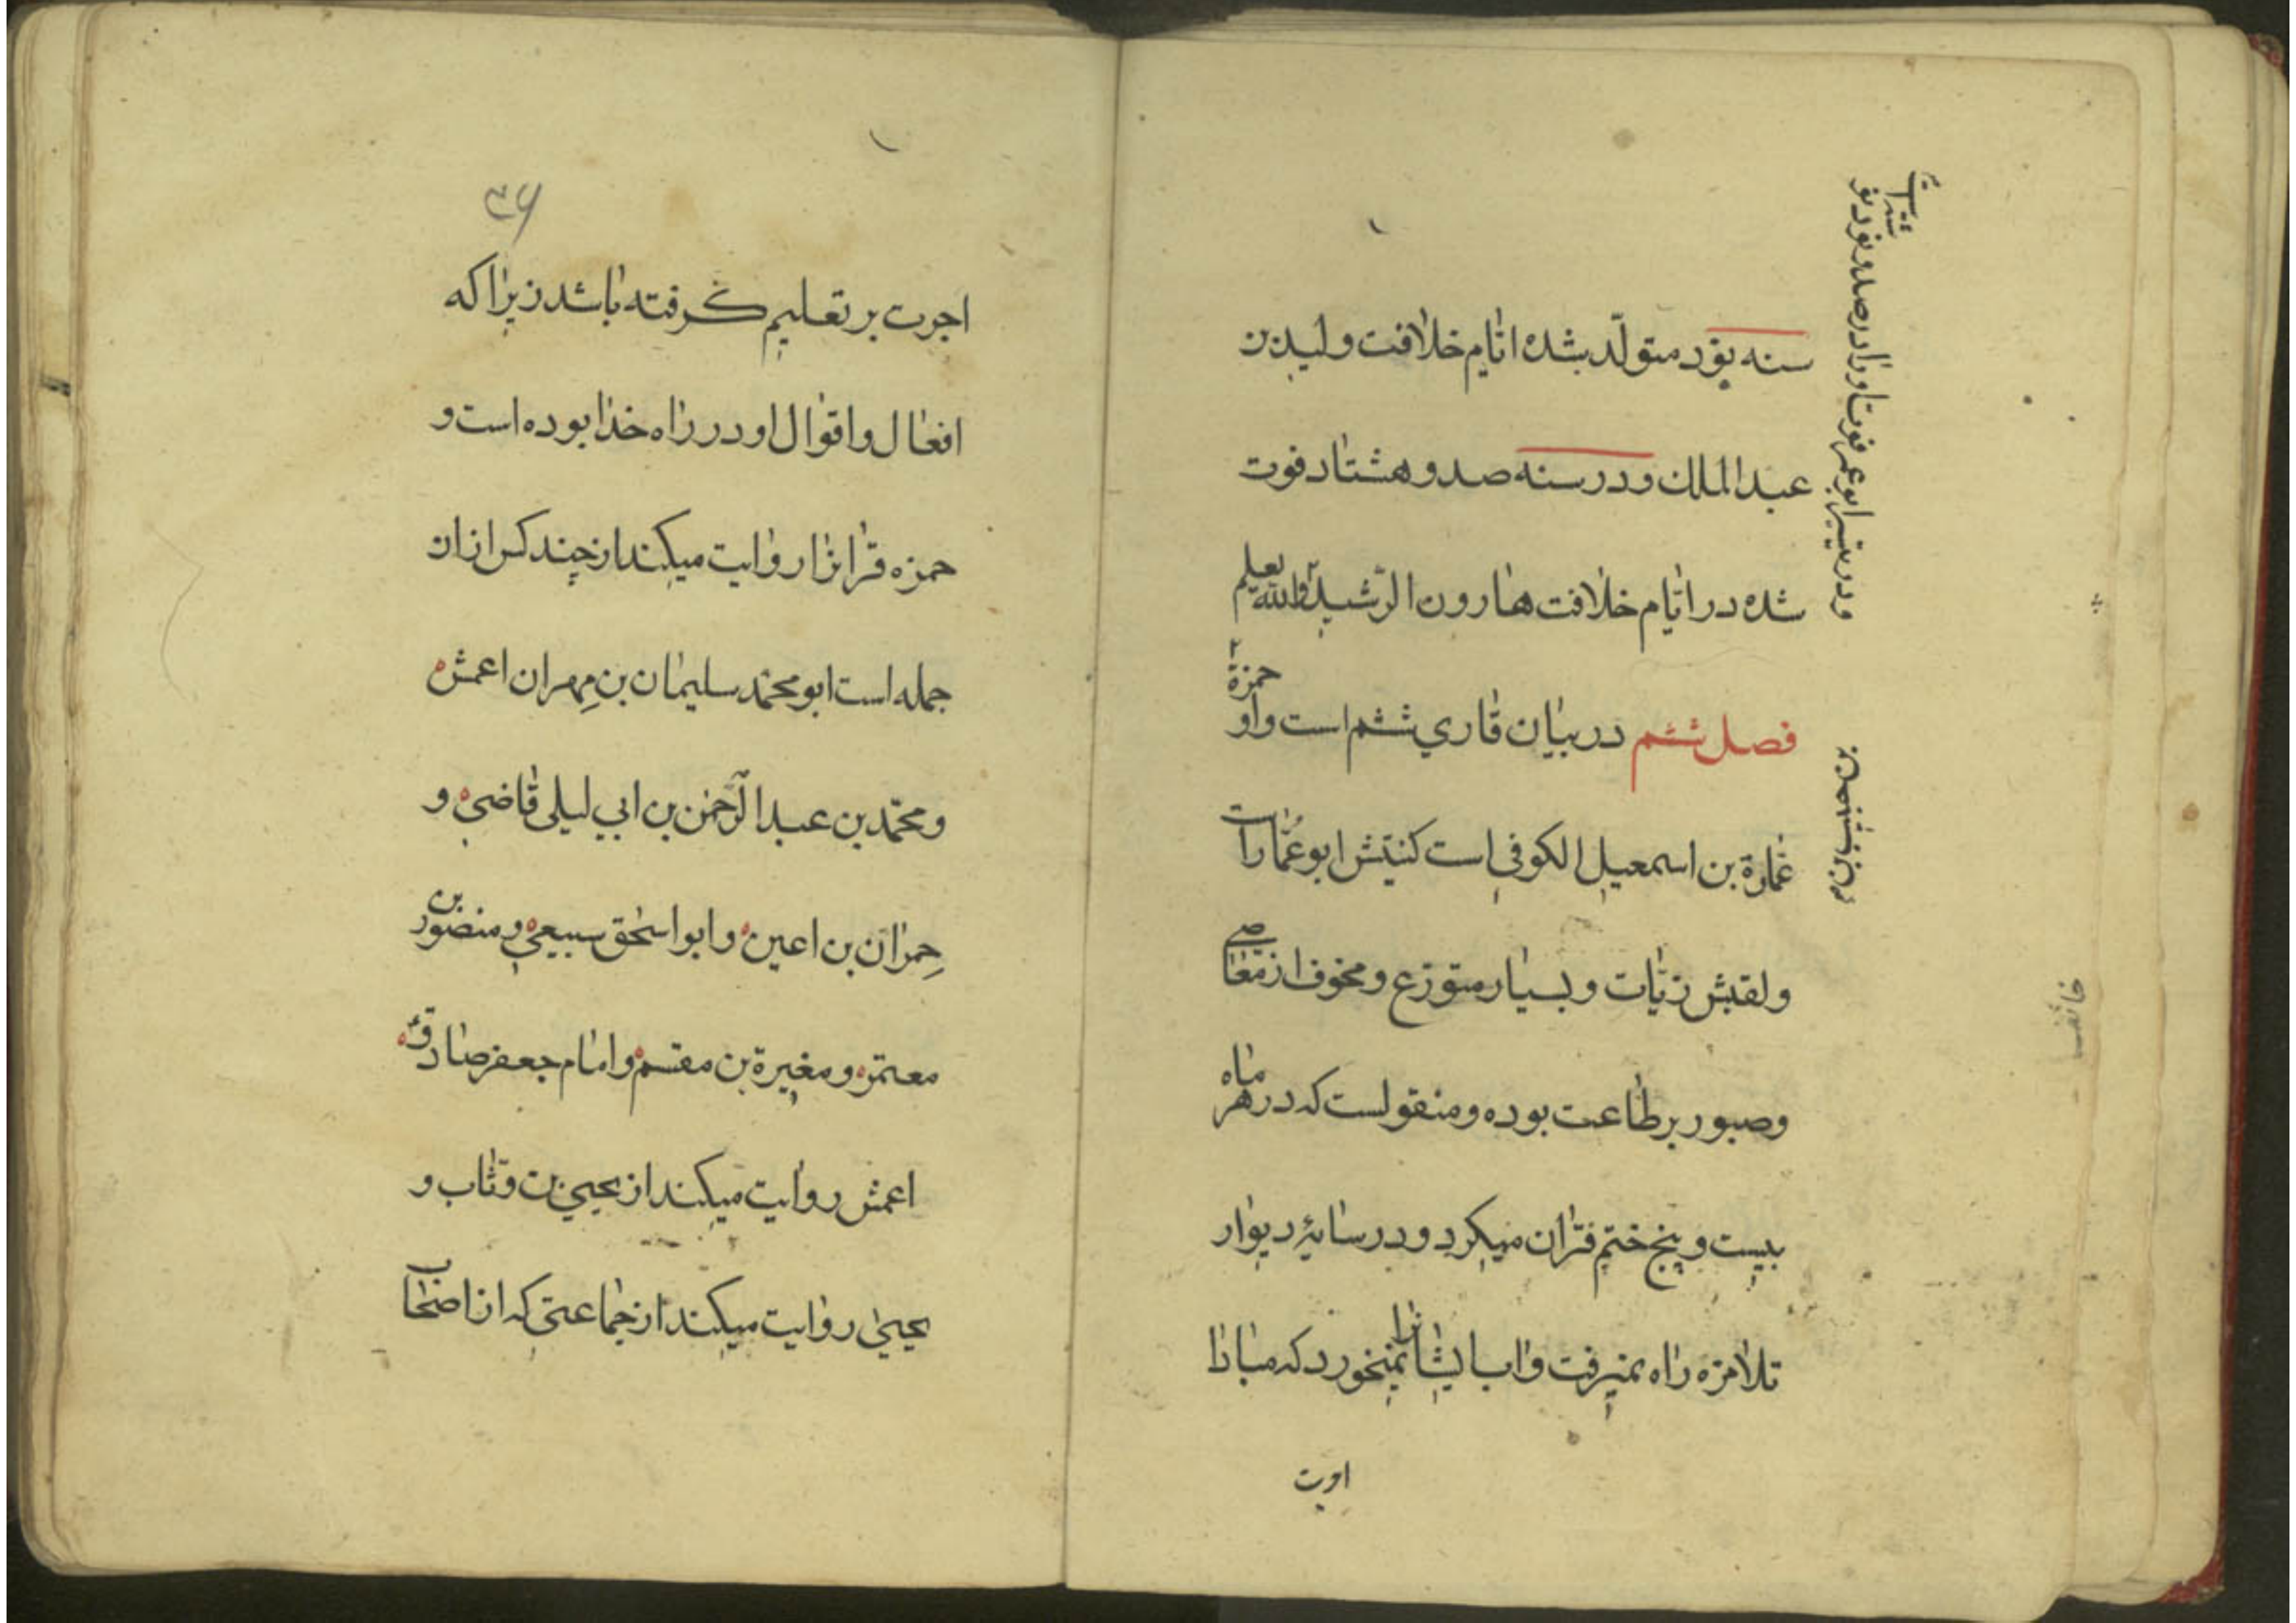 سنه نود متولّد شده اتام خلافت وليد بن
عبد الملك ودر سنه صد و هشتاد فوت
شده در ايّام خلافت هارون الرّشيد والله يعلم
فصل ششم در بيان قاري ششم است و او حمزة
عمارة بن اسمعيل الكوفي است كنيتش ابو عمارات
ولقبش زيّات و بسيار متورّع و مخوف از معاصي
وصبور بر طاعت بوده و منقولست كه در هر ماه
بيست و پنج ختم قران ميكرد و در سايهٔ ديوار
تلامزه راه نميرفت و اب ايشانرا نميخورد كه مبادا
اجرت
ودر تيسير ابو عمر فوت او را در صد و نود
خائف
۳۶
اجرت بر تعليم گرفته باشد زيرا كه
افعال و اقوال او در راه خدا بوده است و
حمزه قرانرا روايت ميكند از چند كس از ان
جمله است ابو محمّد سليمان بن مِهران اعمش
و محمّد بن عبد الرّحمن بن ابي ليلى قاضي و
حِمران بن اعين و ابو اسحٰق سبيعي و منصور بن
معتمر و مغيرة بن مقسم و امام جعفر صادق
اعمش روايت ميكند از يحيي بن وثّاب و
يحيىٰ روايت ميكند از جماعتى كه از اصحاب